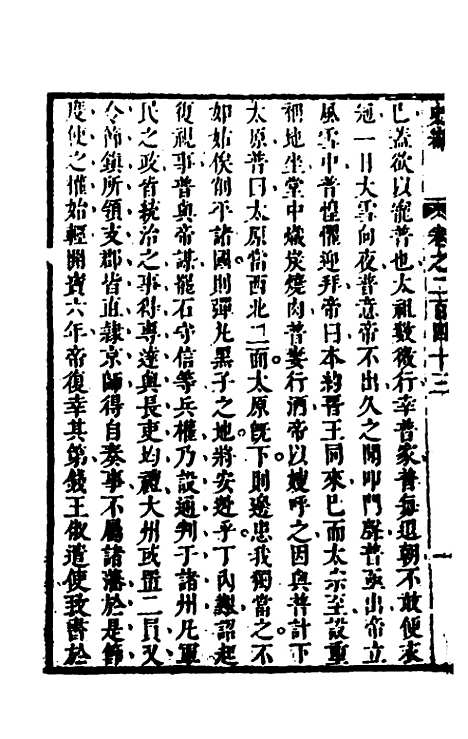 史緯 卷之二百四十三 一
已蓋欲以寵普也太祖數微行幸普家普每退朝不敢便衣
冠一日大雪向夜普意帝不出久之聞叩門聲普亟出帝立
風雪中普惶懼迎拜帝曰本約晉王同來已而太宗至設重
裀地坐堂中熾炭燒肉普妻行酒帝以嫂呼之因與普計下
太原普曰太原當西北二面太原旣下則邊患我獨當之不
如姑俟削平諸國則彈丸黑子之地將安避乎丁內艱詔起
復視事普與帝謀罷石守信等兵權乃設通判于諸州凡軍
民之政皆統治之事得專達與長吏均禮大州或置二員又
令節鎮所領支郡皆直隸京師得自奏事不屬諸藩於是節
度使之權始輕開寶六年帝復幸其第錢王俶遣使致書於